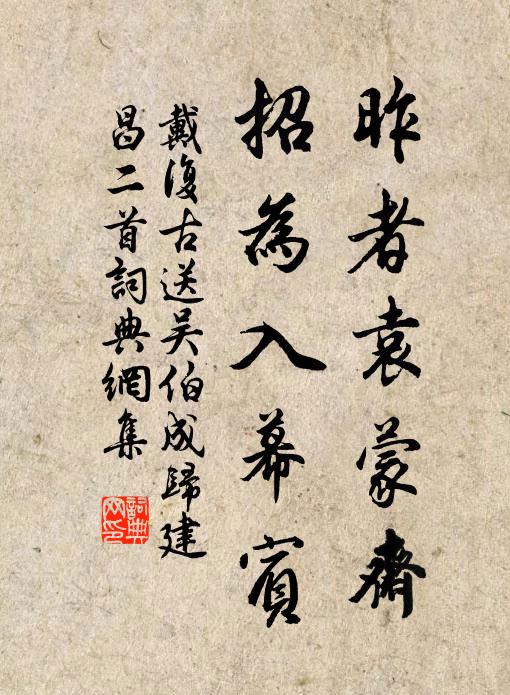 昨者袁蒙齋
招為入幕賓
戴復古送吳伯成歸建
昌二首詞典網集
詞典
网印